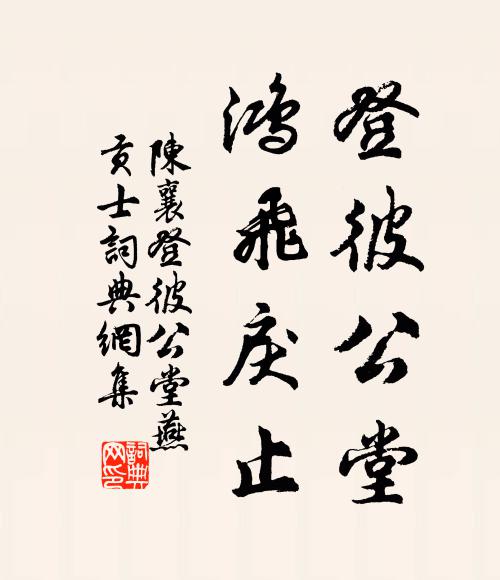 登彼公堂
鴻飛戾止
陳襄登彼公堂燕
貢士詞典網集
詞典
网印